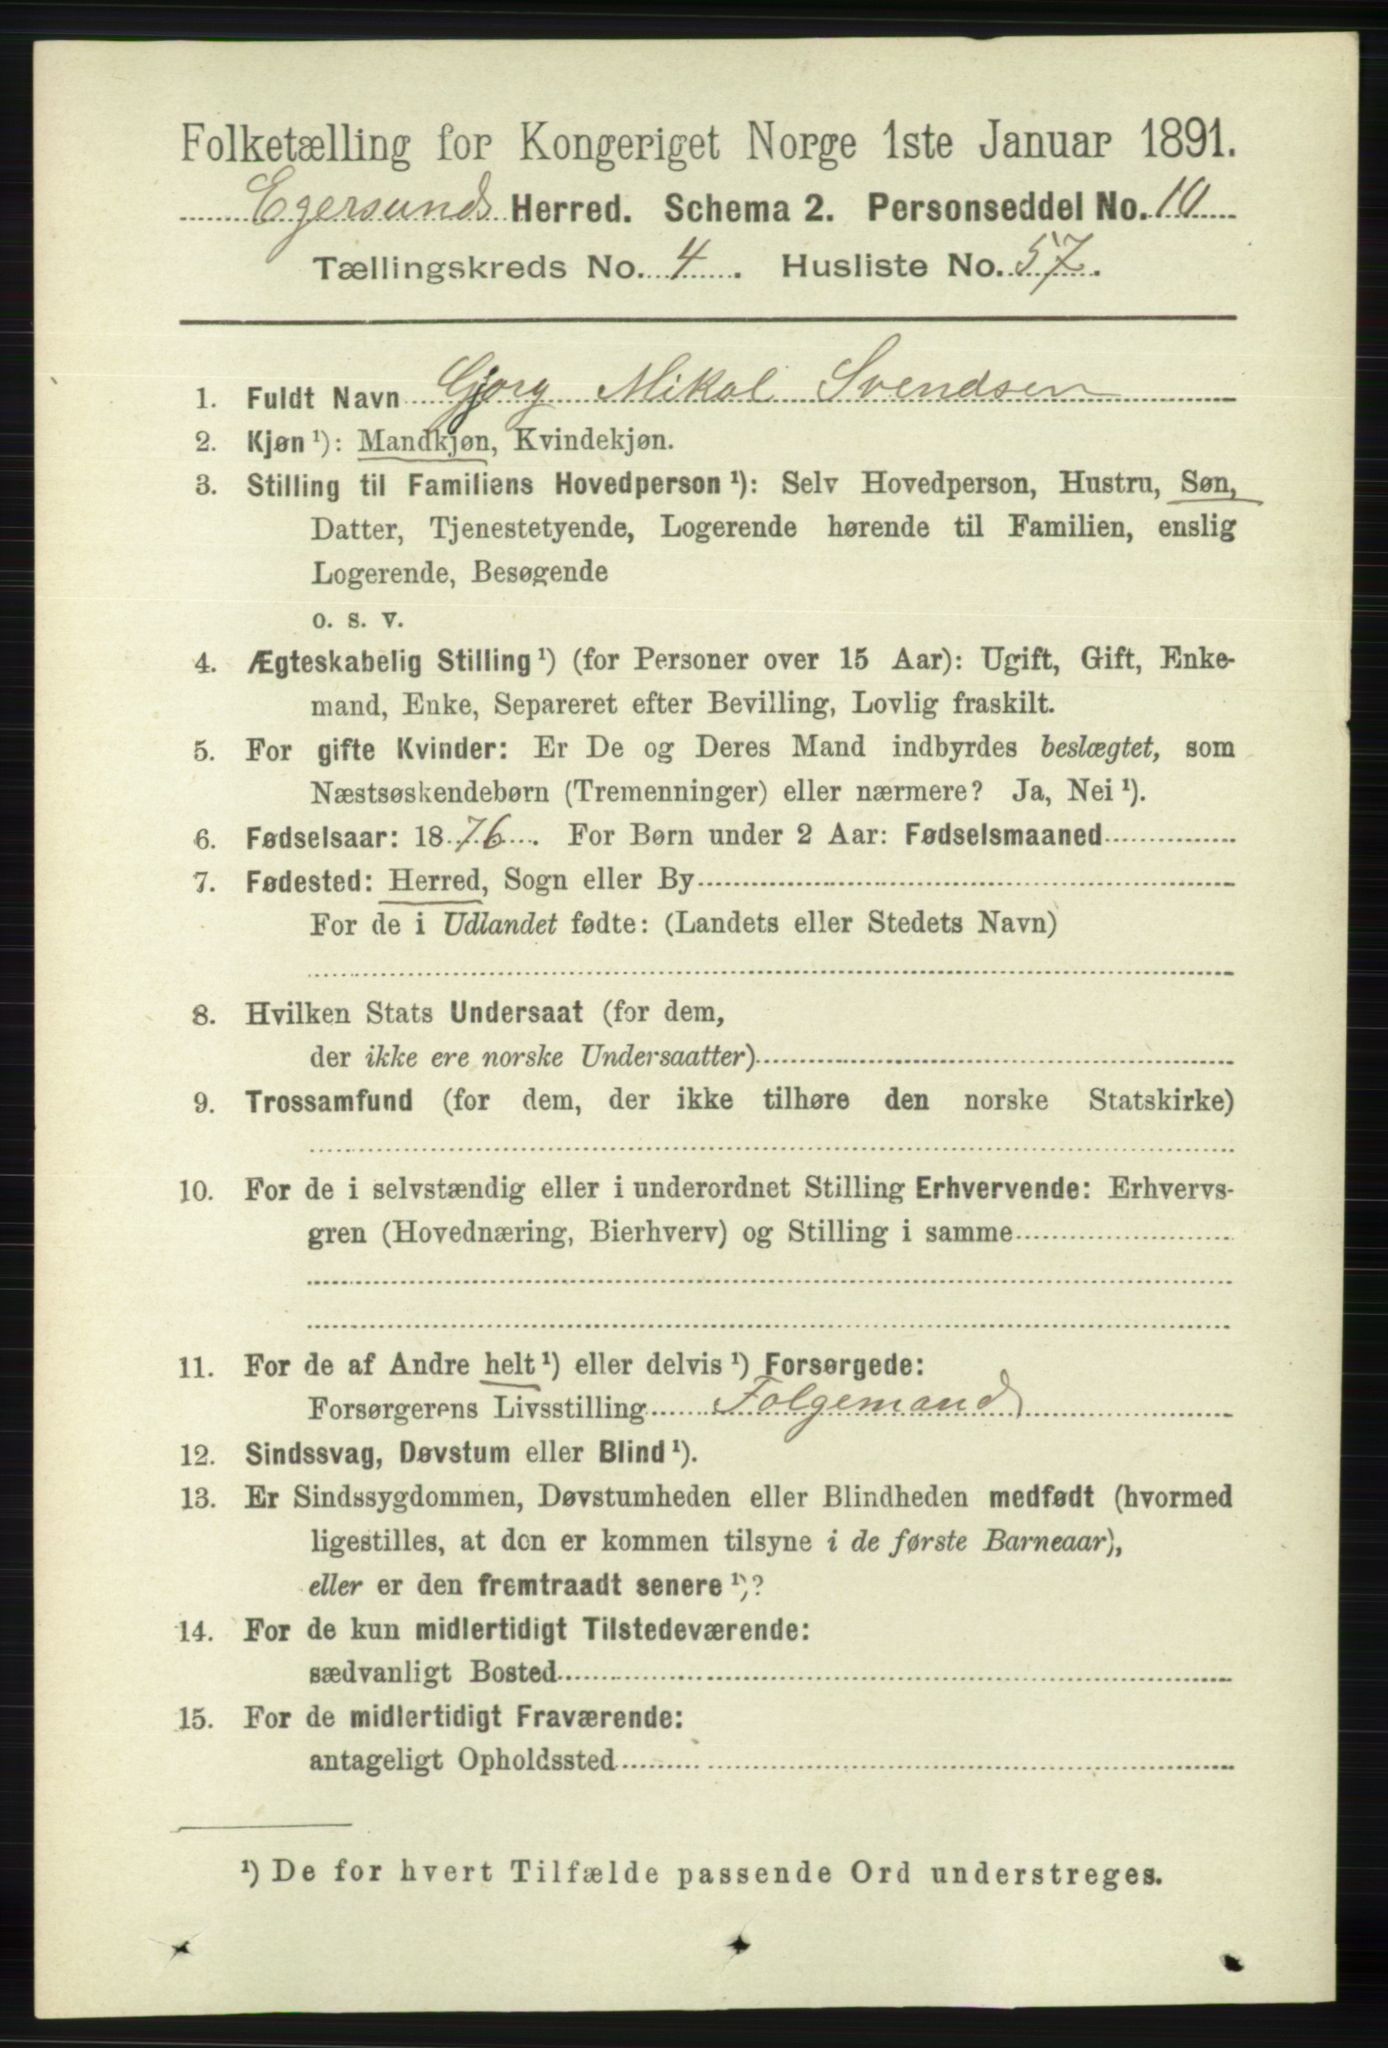 Folketælling for Kongeriget Norge 1ste Januar 1891.
Egersunds Herred. Schema 2. Personseddel No. 10
Tællingskreds No. 4. Husliste No. 57.
1. Fuldt Navn Gjorg Mikal Svendsen
2. Kjøn ¹): Mandkjøn, Kvindekjøn.
3. Stilling til Familiens Hovedperson ¹): Selv Hovedperson, Hustru, Søn,
Datter, Tjenestetyende, Logerende hørende til Familien, enslig
Logerende, Besøgende
o. s. v.
4. Ægteskabelig Stilling ¹) (for Personer over 15 Aar): Ugift, Gift, Enke-
mand, Enke, Separeret efter Bevilling, Lovlig fraskilt.
5. For gifte Kvinder: Er De og Deres Mand indbyrdes beslægtet, som
Næstsøskendebørn (Tremenninger) eller nærmere? Ja, Nei ¹).
6. Fødselsaar: 1876. For Børn under 2 Aar: Fødselsmaaned
7. Fødested: Herred, Sogn eller By
For de i Udlandet fødte: (Landets eller Stedets Navn)
8. Hvilken Stats Undersaat (for dem,
der ikke ere norske Undersaatter)
9. Trossamfund (for dem, der ikke tilhøre den norske Statskirke)
10. For de i selvstændig eller i underordnet Stilling Erhvervende: Erhvervs-
gren (Hovednæring, Bierhverv) og Stilling i samme
11. For de af Andre helt ¹) eller delvis ¹) Forsørgede:
Forsørgerens Livsstilling Folgemand
12. Sindssvag, Døvstum eller Blind ¹).
13. Er Sindssygdommen, Døvstumheden eller Blindheden medfødt (hvormed
ligestilles, at den er kommen tilsyne i de første Barneaar),
eller er den fremtraadt senere ¹)?
14. For de kun midlertidigt Tilstedeværende:
sædvanligt Bosted
15. For de midlertidigt Fraværende:
antageligt Opholdssted
¹) De for hvert Tilfælde passende Ord understreges.